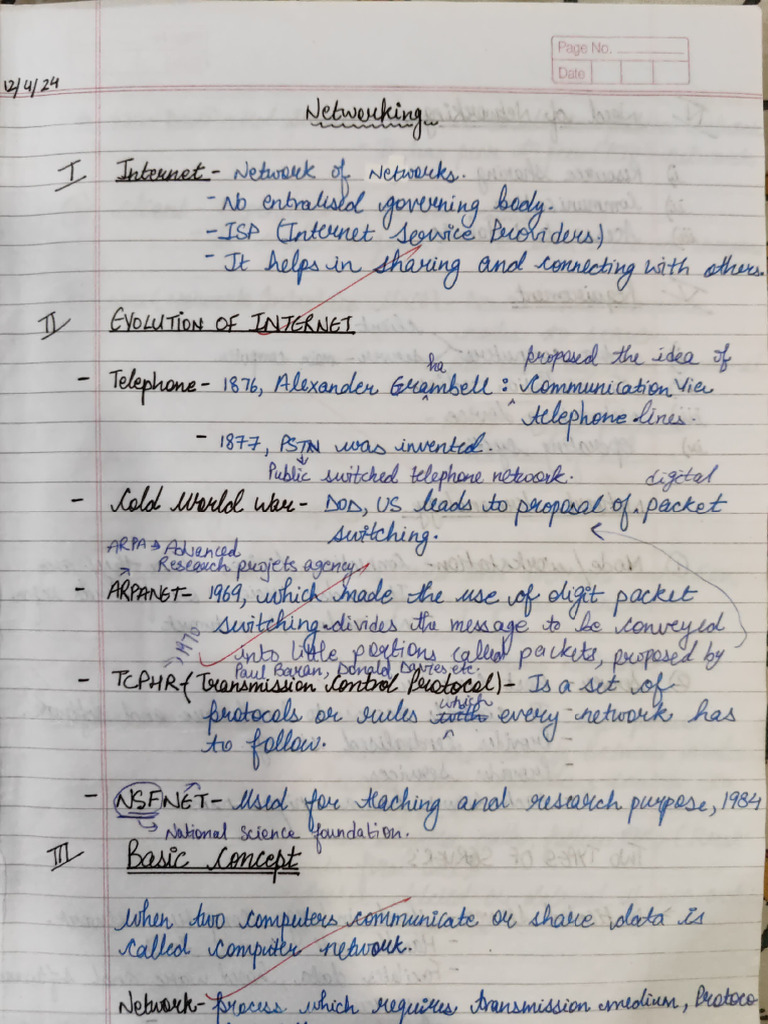 Page No.
Date
12/4/24
Networking
I Internet - Network of Networks.
- No entralised governing body.
- ISP (Internet Service Providers)
- It helps in sharing and connecting with others.
II EVOLUTION OF INTERNET
proposed the idea of
- Telephone - 1876, Alexander Grahambell : Communication via
telephone lines.
- 1877, PSTN was invented.
Public switched telephone network.
digital
- Cold World War - DOD, US leads to proposal of packet
switching.
ARPA → Advanced
Research projets agency
- ARPANET - 1969, which made the use of digit packet
switching. divides the message to be conveyed
into little portions called packets, proposed by
Paul Baran, Donald Davies etc.
1970
- TCPHR (Transmission Control Protocol) - Is a set of
protocols or rules which every network has
to follow.
- NSFNET - Used for taching and research purpose, 1984
→ National science foundation.
III Basic Concept
When two computers communicate or share data is
called computer network.
Network - process which requires transmission medium, Protoco